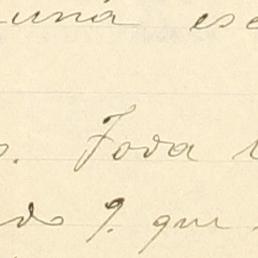 una es
Toda
do q. que